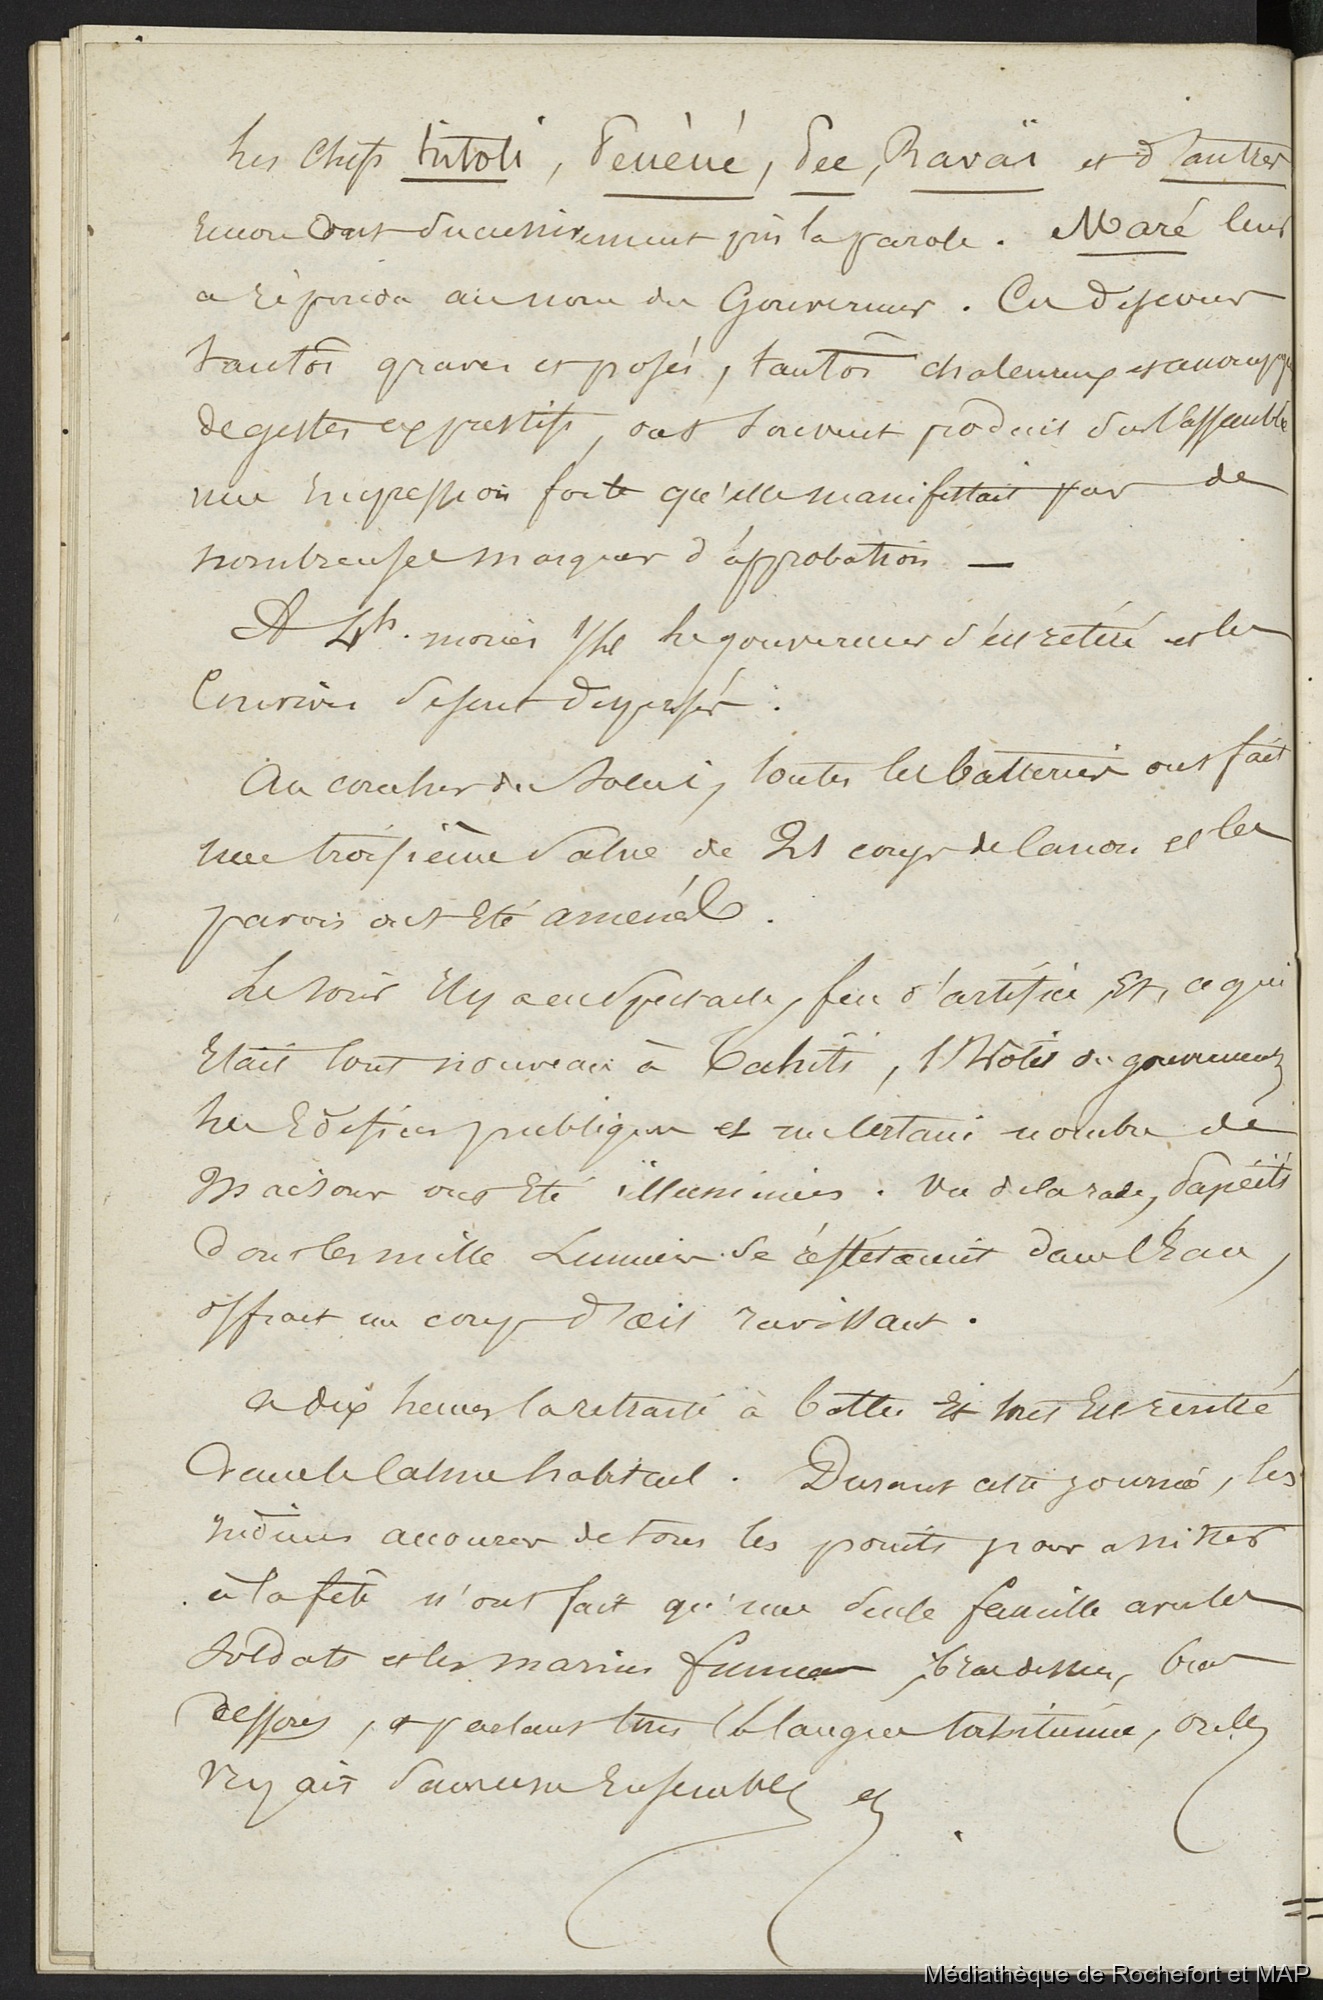 Les chefs tutoli, Peuèué, Pee, Ravaï et d'autres
Encore ont successivement pris la parole. Maré leur
a répondu au nom du Gouverneur. Ces discours
tantôt graves et posés, tantôt chaleureux et accompagnés
de gestes expressifs, ont souvent produit sur l'assemblée
une Impression forte qu'elle manifestait par de
nombreuses marques d'approbation —
A 4h. moins 1/4 le gouverneur s'est retiré et les
Convives se sont dispersés.
Au coucher du soleil, toutes les batteries ont fait
une troisième salve de 21 coups de Canon et les
pavois ont Eté amenés.
Le soir Il y a eu Spectacle, feu d'artifice Et, ce qui
Etait tout nouveau à Tahiti, l'hôtel du gouvernement
les Edifices publiques et un Certain nombre de
Maisons ont Eté illuminés. Vu de la rade, Papéïti
Dont les mille Lumières se réflétaient dans l'Eau,
offrait un coup d'œil ravissant.
a dix heures la retraite à battu Et tout Est rentré
Dans le Calme habituel. Durant cette journée, les
indiens accourus de tous les points pour assister
à la fête n'ont fait qu'une seule famille avec les
soldats et les marins français bras dessus, bras
dessous, et parlant tous la langue tahitienne,